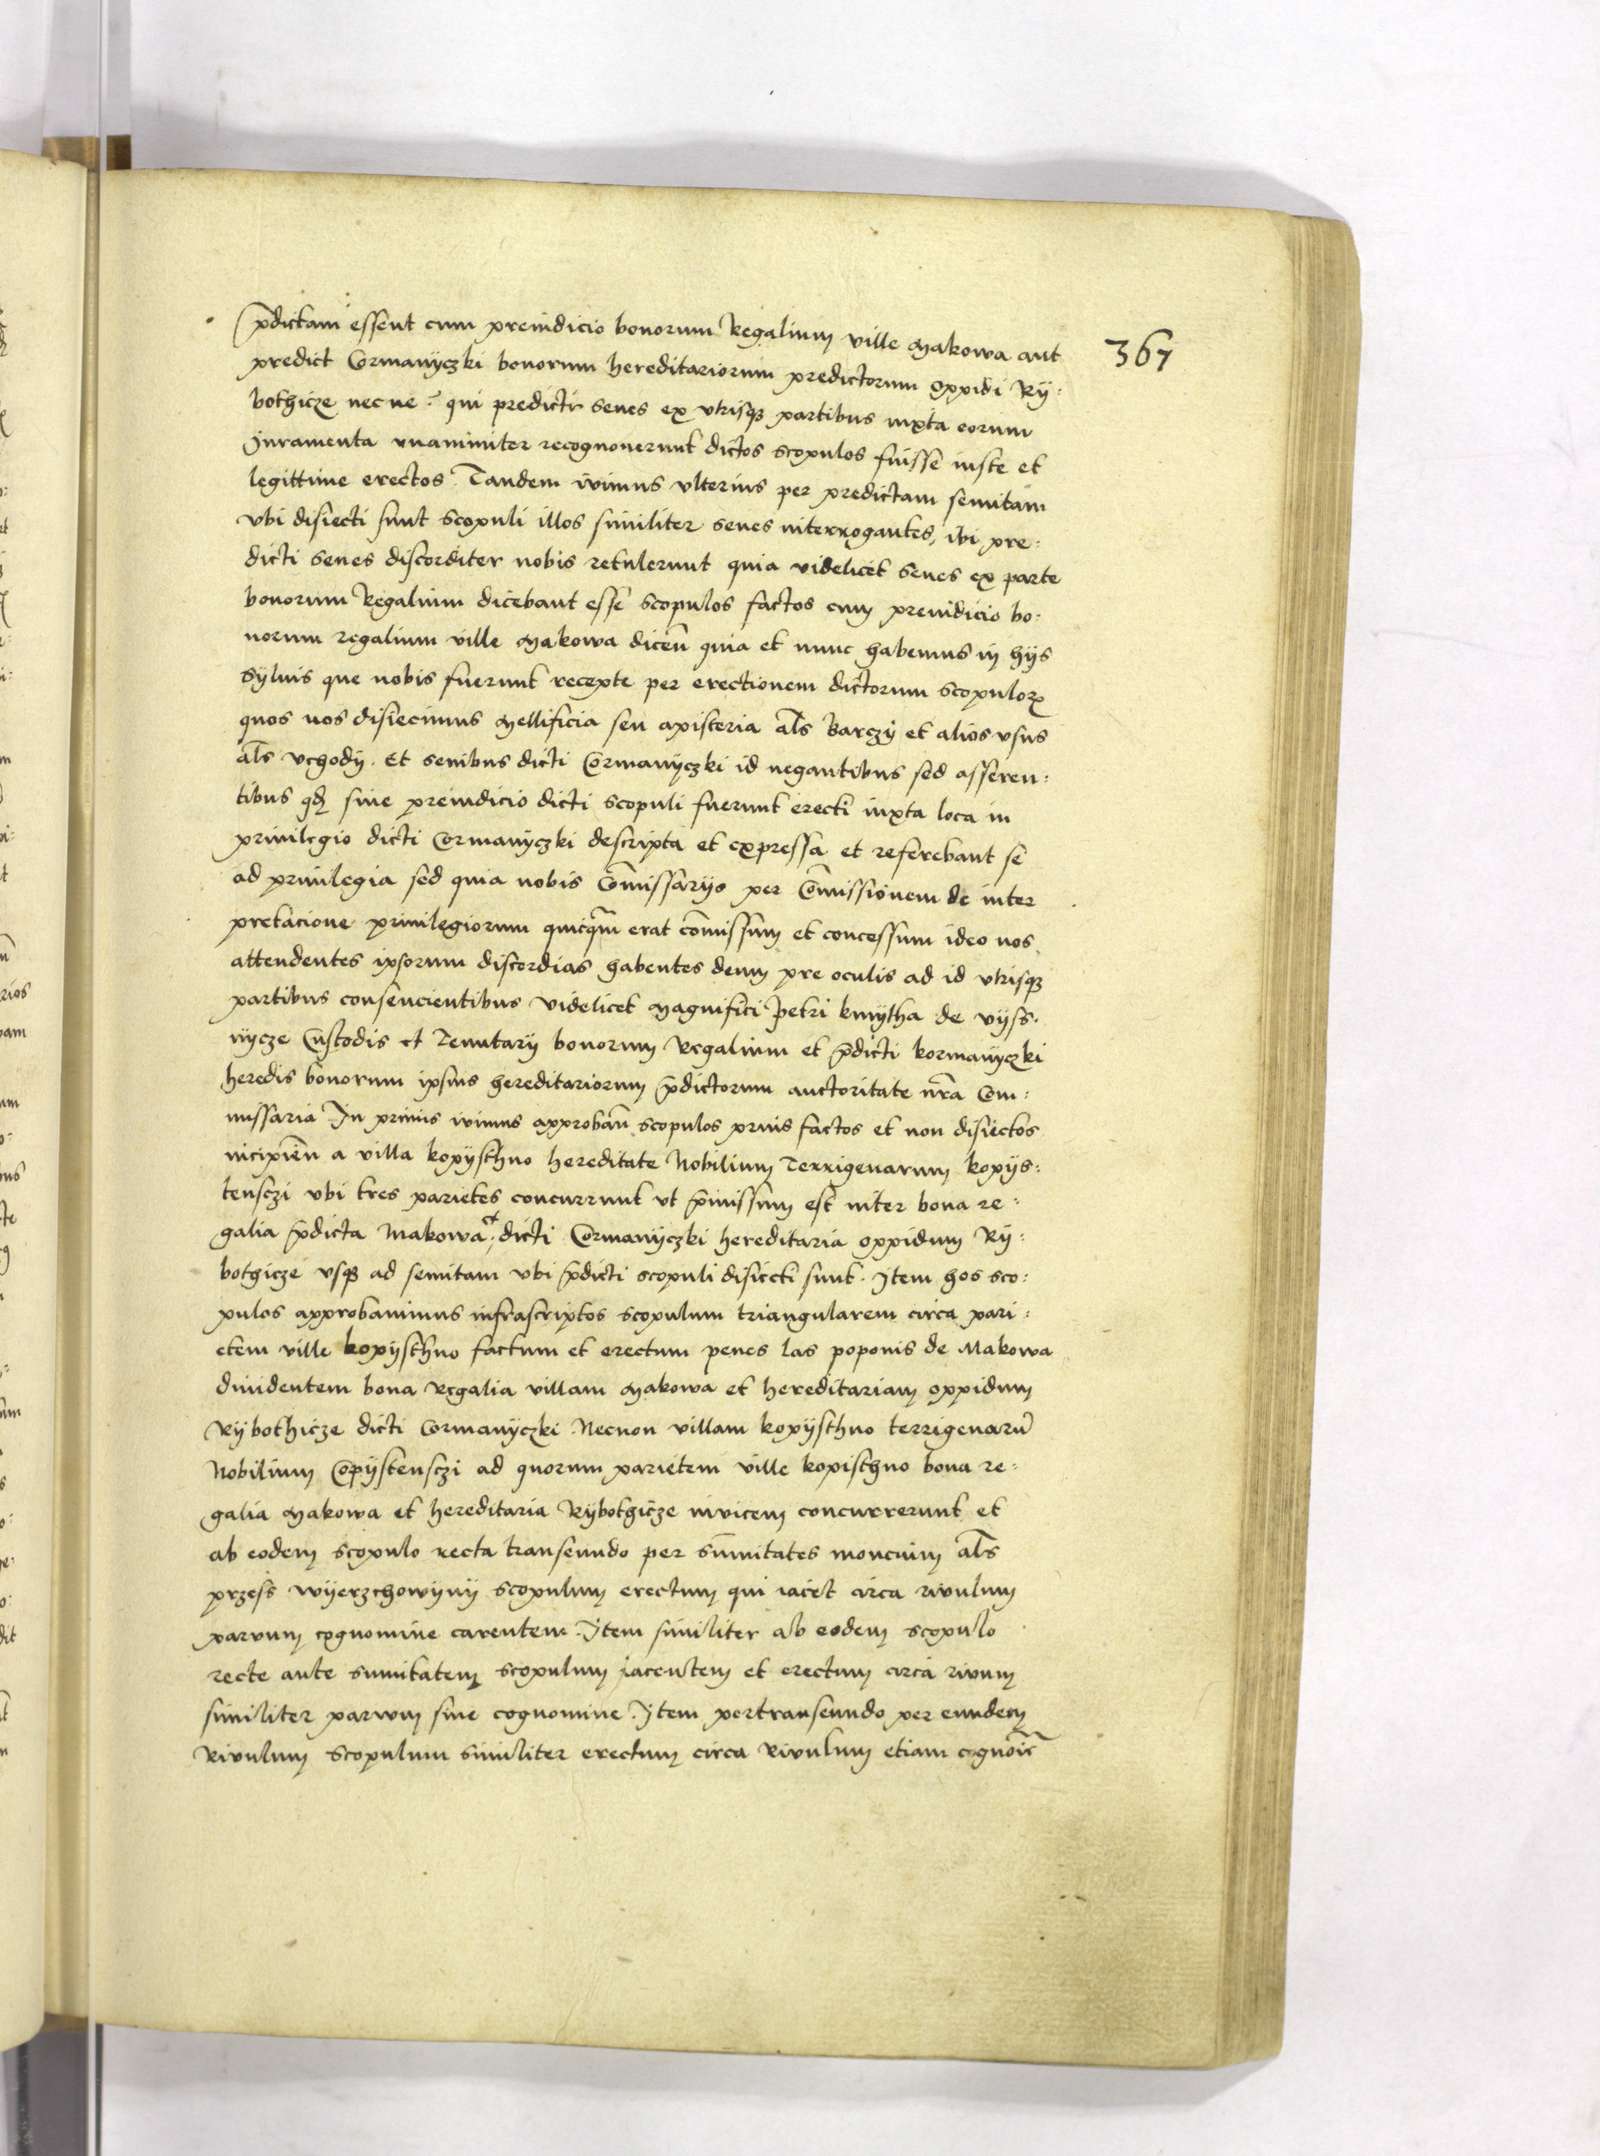 p̄dictam essent cum preiudicio bonorum Regalium ville Makowa aut
367
predict Cormanyczki bonorum hereditariorum predictorum oppidi Ry:
bothicze nec ne? qui predicti senes ex vtrisqꝫ partibus iuxta eorum
Juramenta vnanimiter recognouerunt dictos scopulos fuisse iuste et
legittime erectos. Tandem iuimus vlterius per predictam semitam
vbi disiecti sunt scopuli illos similiter senes interrogantes, ibi pre:
dicti senes discorditer nobis retulerunt quia videlicet senes ex parte
bonorum Regalium dicebant esse scopulos factos cum preiudicio bo:
norum regalium ville Makowa dicen̄ quia et nunc habemus in hÿs
syluis que nobis fuerunt recepte per erectionem dictorum scopuloꝝ
quos nos disiecimus Mellificia seu apisteria al̄s Barczÿ et alios vsus
al̄s vchodÿ. Et senibus dicti Cormanyczki id negantibus sed asseren:
tibus qđ sine preiudicio dicti scopuli fuerunt erecti iuxta loca in
priuilegio dicti Cormanyczki descripta et expressa et referebant se
ad priuilegia sed quia nobis Com̄issarÿs per Com̄issionem de inter
pretacione priuilegiorum quicq̄m erat com̄issum et concessum ideo nos
attendentes ipsorum discordias habentes deum pre oculis ad id vtrisqꝫ
partibus consencientibus videlicet Magnifici Petri kmytha de vÿss:
nÿcze Custodis et Tenutarÿ bonorum Regalium et p̄dicti kormanÿczki
heredis bonorum ipsius hereditariorum p̄dictorum auctoritate n̄ra Com:
missaria In primis iuimus approban̄ scopulos prius factos et non disiectos
incipien̄ a villa kopÿsthno hereditate Nobilium Terrigenarum kopÿs:
tensczi vbi tres parietes concurrunt vt p̄missum est inter bona re:
galia p̄dicta Makowa et dicti Cormanÿczki hereditaria oppidum Rÿ:
bothicze vsqꝫ ad semitam vbi p̄dicti scopuli disiecti sunt. Item hos sco:
pulos approbauimus infrascriptos scopulum triangularem circa pari:
etem ville kopÿsthno factum et erectum penes las poponis de Makowa
diuidentem bona Regalia villam Makowa et hereditariam oppidum
Rÿbothicze dicti Cormanÿczki Necnon villam kopÿsthno terrigenarū
Nobilium Copÿstensczi ad quorum parietem ville kopisthno bona re:
galia Makowa et hereditaria Rÿbothicze inuicem concurrerunt et
ab eodem scopulo recta transeundo per sum̄itates moncium al̄s
przess wÿerzchowÿnÿ scopulum erectum qui iacet circa riuulum
paruum cognomine carentem. Item similiter ab eodem scopulo
recte ante sumitatem scopulum iacentem et erectum circa riuum
similiter paruum sine cognomine. Item pertranseundo per eundem
Riuulum scopulum similiter erectum circa Riuulum etiam cognoīe